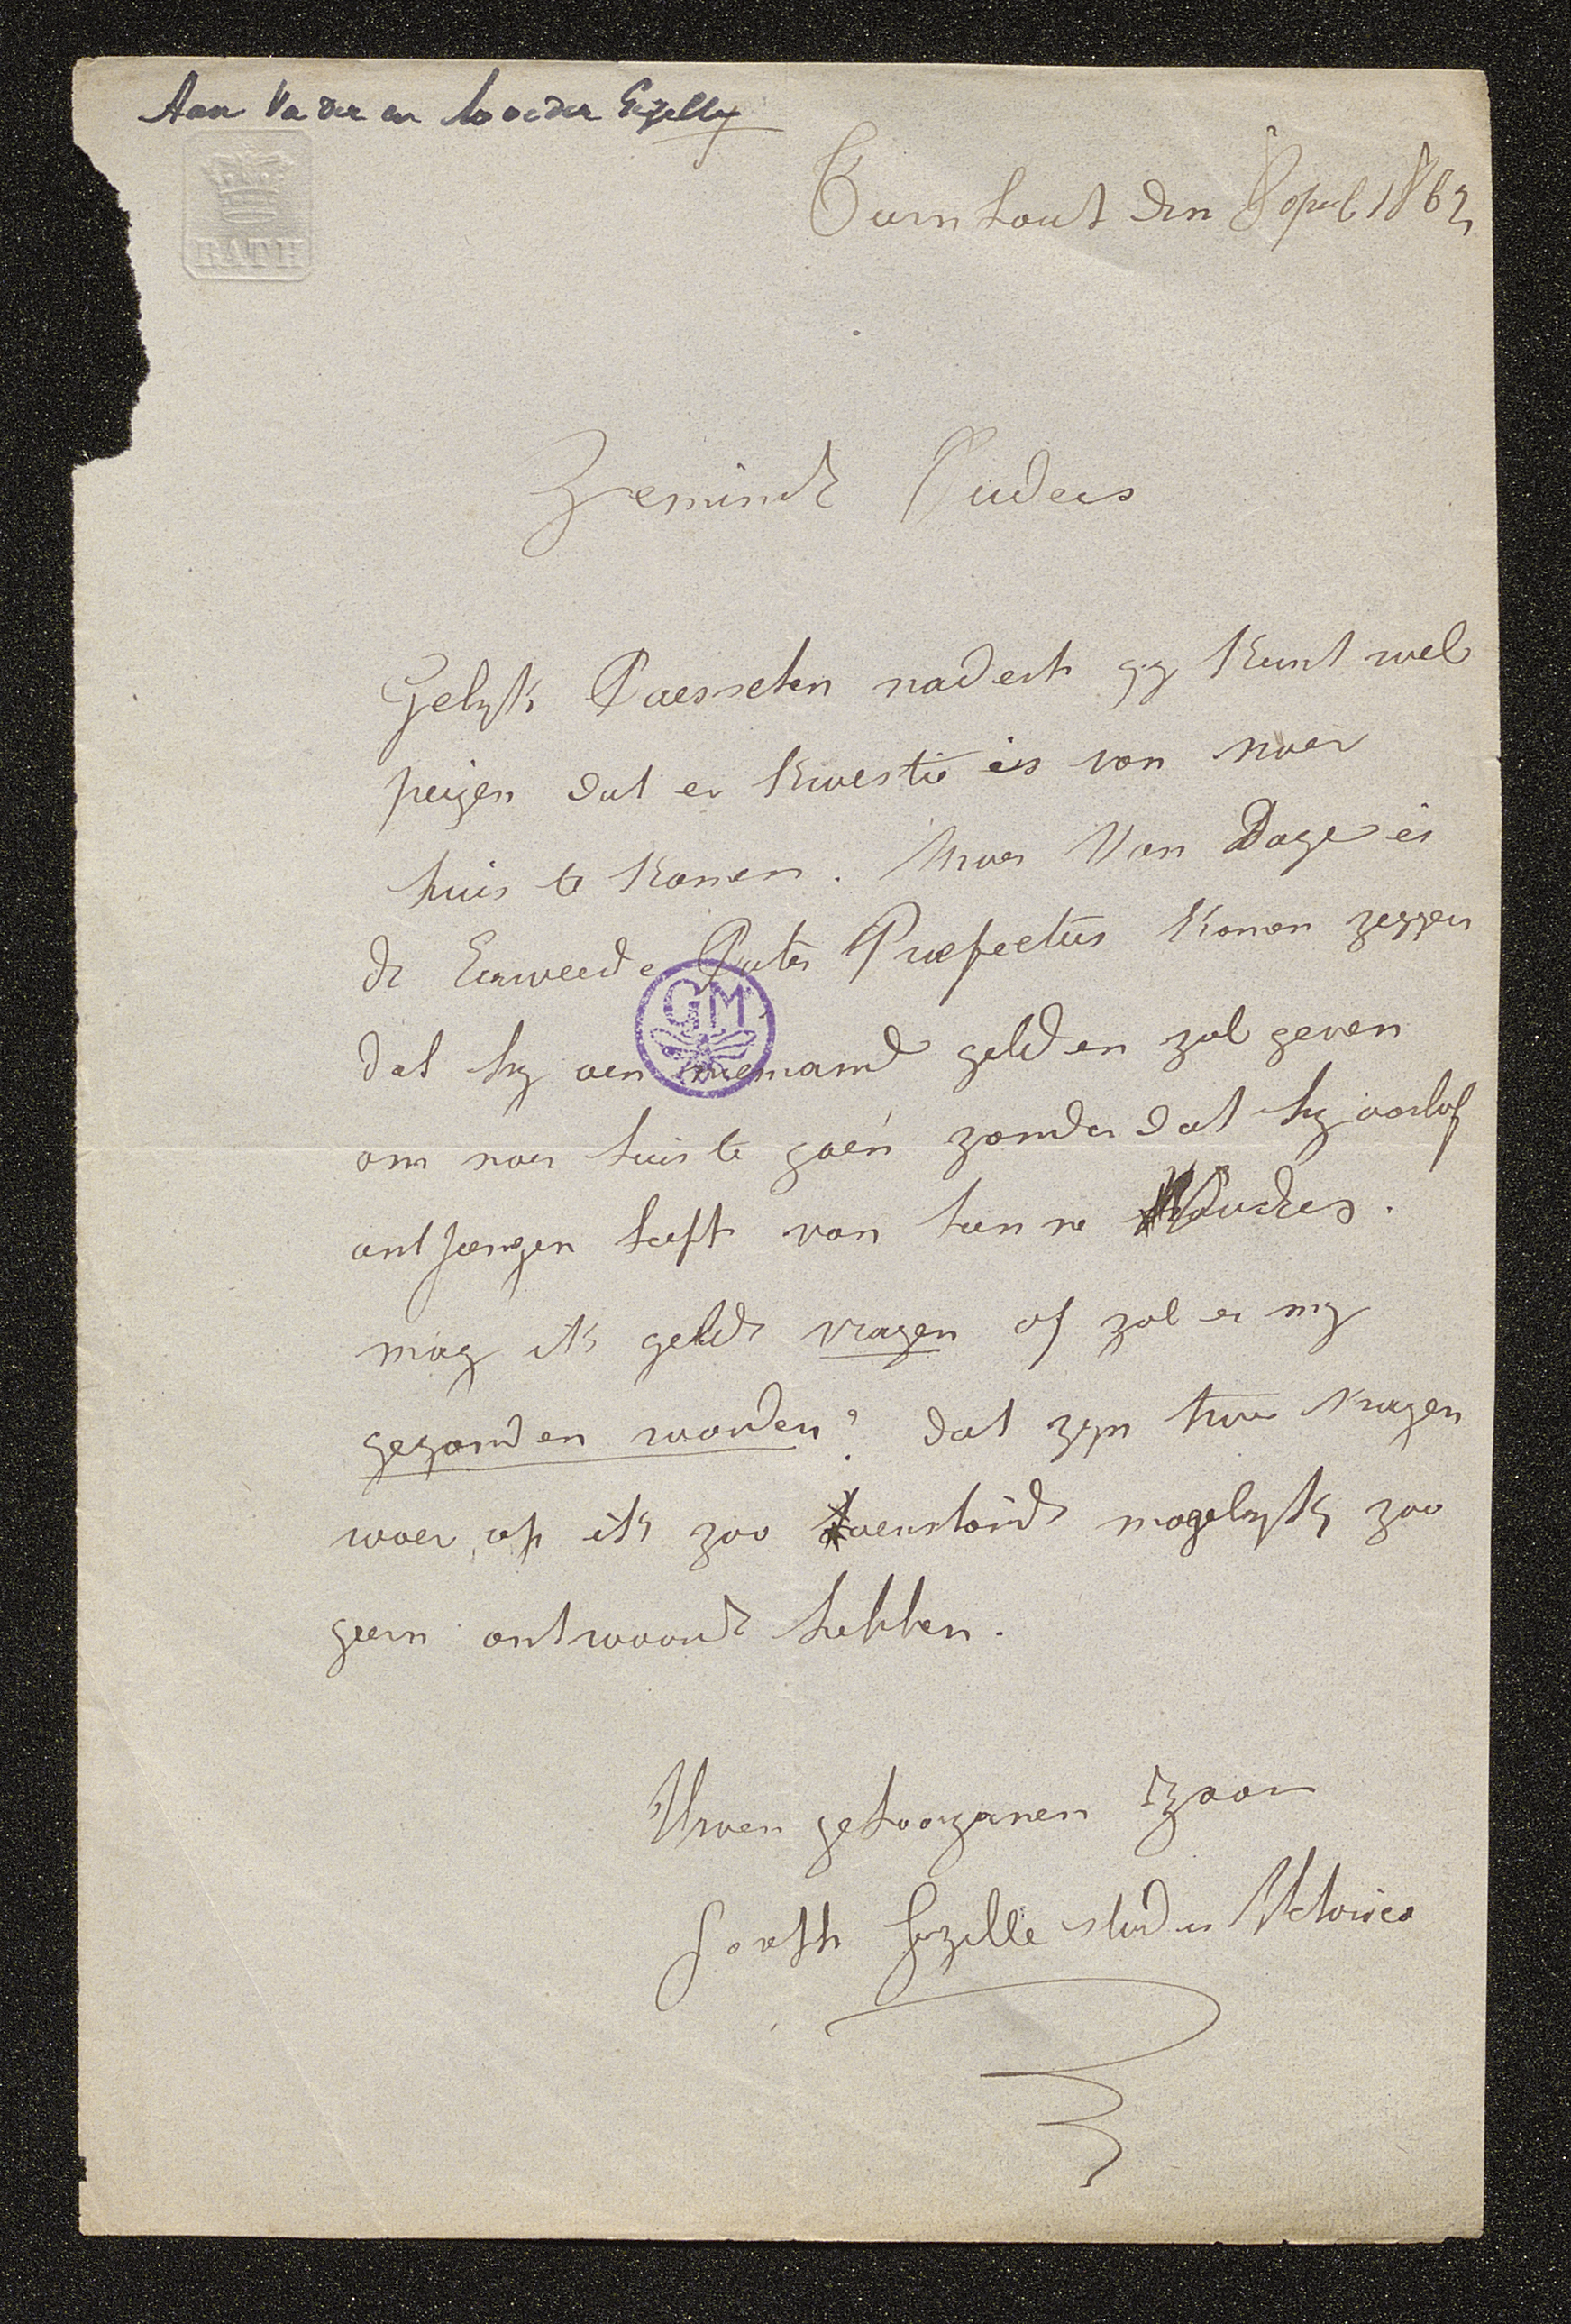 Aan Vader en Moeder Gezelle
BATH
Turnhout den 8 april 1862
Beminde Ouders
Gelyk Paesschen nadert gy kunt wel
peizen dat er kwestie is van naer
huis te komen. Maer Van Dage is
de Eerweerde Pater Praefectus komen zeggen
dat hy aen niemand gelden zal geven
GM
om naer huis te gaen zonder dat hy oorlof
ontfangen heeft van hunne Ouders.
mag ik geld vragen of zal er my
gezonden worden? dat zyn twee vragen
waer op ik zoo zoo mogelyk zoo
geern antwoord hebben.
Uwen gehoorzamen zoon
Joseph Gezelle